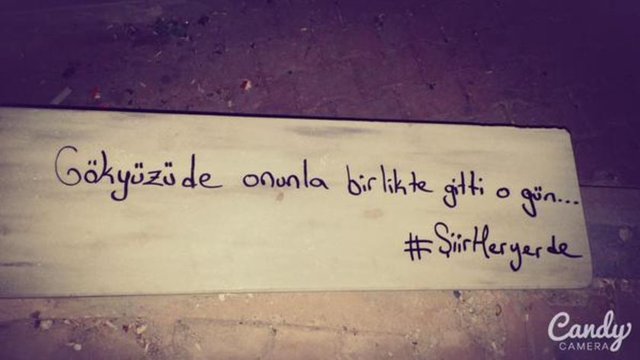 Gökyüzüde onunla birlikte gitti o gün...
#ŞiirHeryerde
Candy
CAMERA